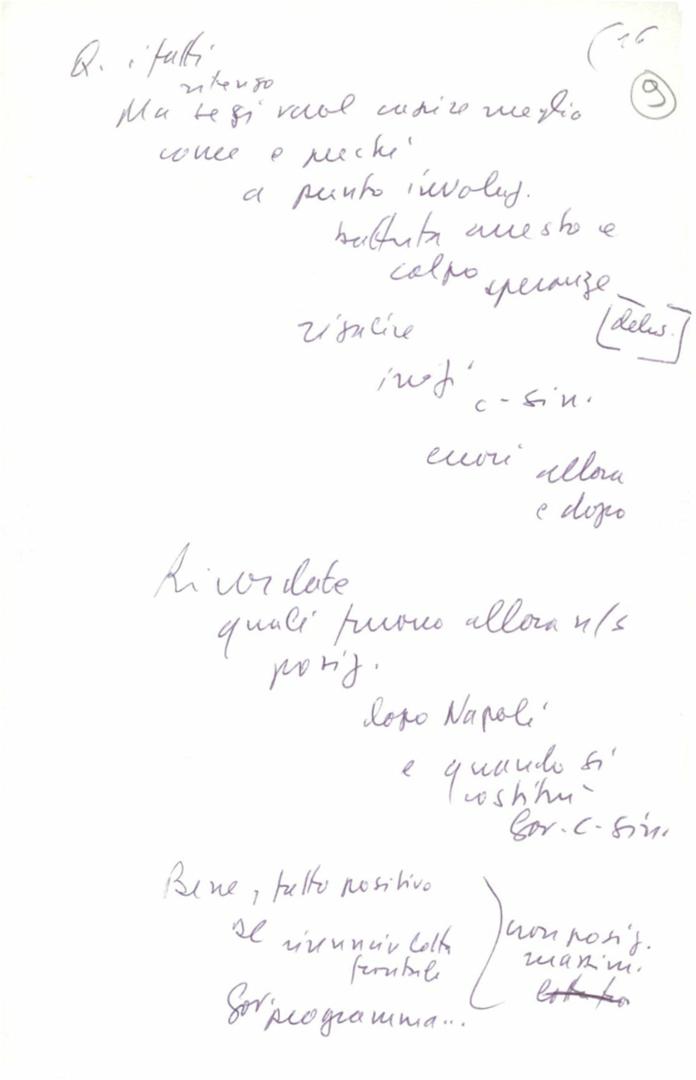 (16
9
Q. i fatti
ritengo
Ma se si vuol capire meglio
come e perché
a punto involuz.
battuta arresto e
colpo speranze
[delus.]
risalire
inizi c-sin.
errori allora
e dopo
Ricordate
quali furono allora n/s
posiz.
dopo Napoli
e quando si
costituì
Gov. C-sin.
Bene, fatto positivo
se rinuncia lotta
frontale
Gov. programma...
non posiz.
massim.